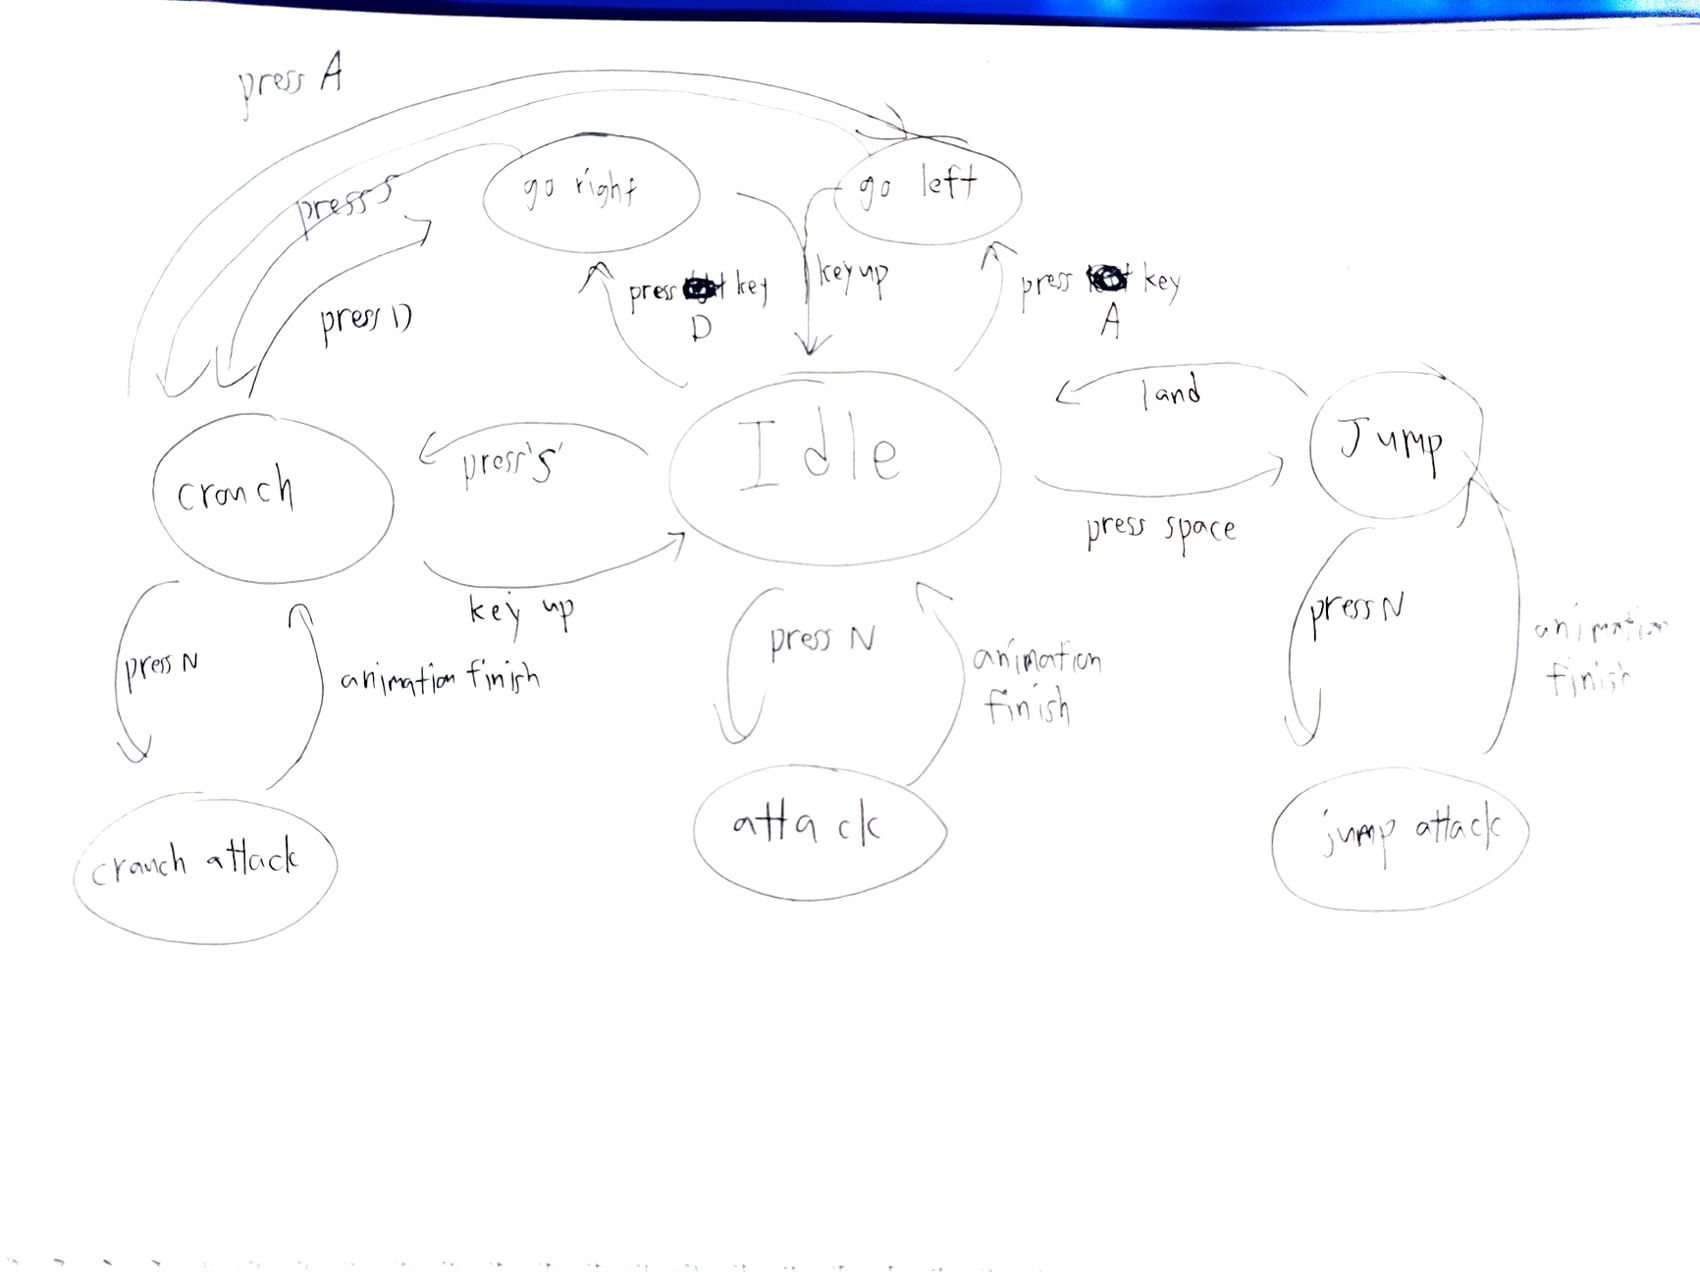 press A
go right
go left
press S
press D
press key
D
key up
press key
A
land
Idle
Jump
crouch
press 'S'
press space
key up
press N
animation finish
press N
animation
finish
press N
animation
finish
crouch attack
attack
jump attack